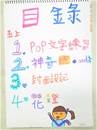 目錄
五上
1. POP文字練習
2. 神奇
3. 封面設計
4. 花邊